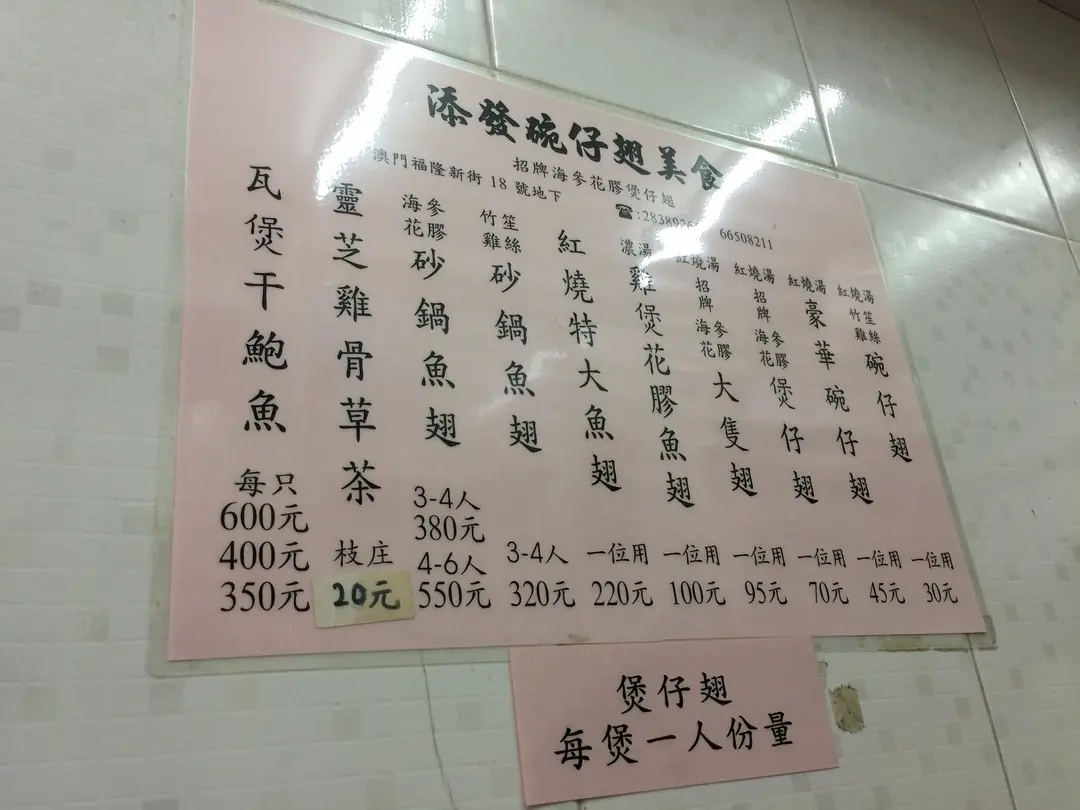 添發碗仔翅美食
招牌海參花膠煲仔翅
澳門福隆新街 18 號地下
66508211
紅燒湯
竹笙
雞絲
碗仔翅
一位用
30元
紅燒湯
豪華碗仔翅
一位用
45元
紅燒湯
招牌
海參
花膠
煲仔翅
一位用
70元
紅燒湯
招牌
海參
花膠
大隻翅
一位用
95元
濃湯
雞煲花膠魚翅
一位用
100元
紅燒特大魚翅
一位用
220元
竹笙
雞絲
砂鍋魚翅
3-4人
320元
海參
花膠
砂鍋魚翅
3-4人
380元
4-6人
550元
靈芝雞骨草茶
枝庄
20元
瓦煲干鮑魚
每只
600元
400元
350元
煲仔翅
每煲一人份量